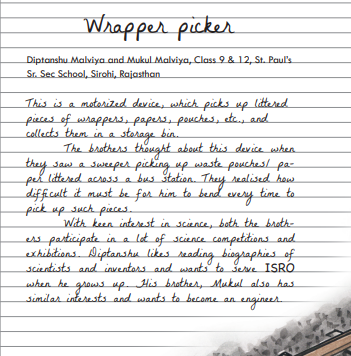 Wrapper picker
Diptanshu Malviya and Mukul Malviya, Class 9 & 12, St. Paul's
Sr. Sec School, Sirohi, Rajasthan
This is a motorized device, which picks up littered
pieces of wrappers, papers, pouches, etc., and
collects them in a storage bin.
The brothers thought about this device when
they saw a sweeper picking up waste pouches/ pa-
per littered across a bus station. They realised how
difficult it must be for him to bend every time to
pick up such pieces.
With keen interest in science, both the broth-
ers participate in a lot of science competitions and
exhibitions. Diptanshu likes reading biographies of
scientists and inventors and wants to serve ISRO
when he grows up. His brother, Mukul also has
similar interests and wants to become an engineer.